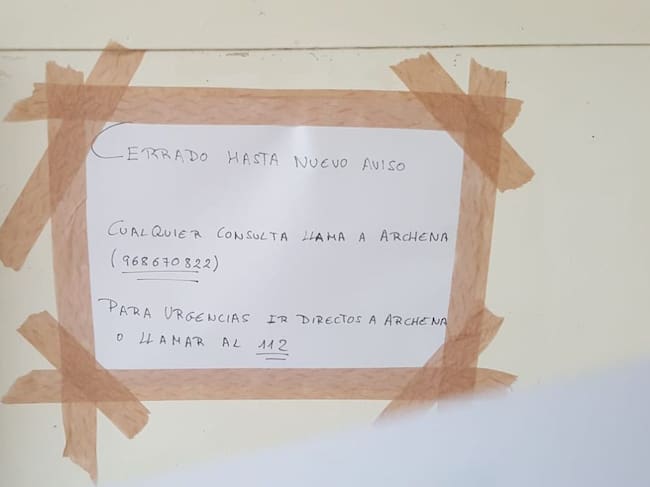 CERRADO HASTA NUEVO AVISO
CUALQUIER CONSULTA LLAMA A ARCHENA
(968670822)
PARA URGENCIAS IR DIRECTOS A ARCHENA
O LLAMAR AL 112